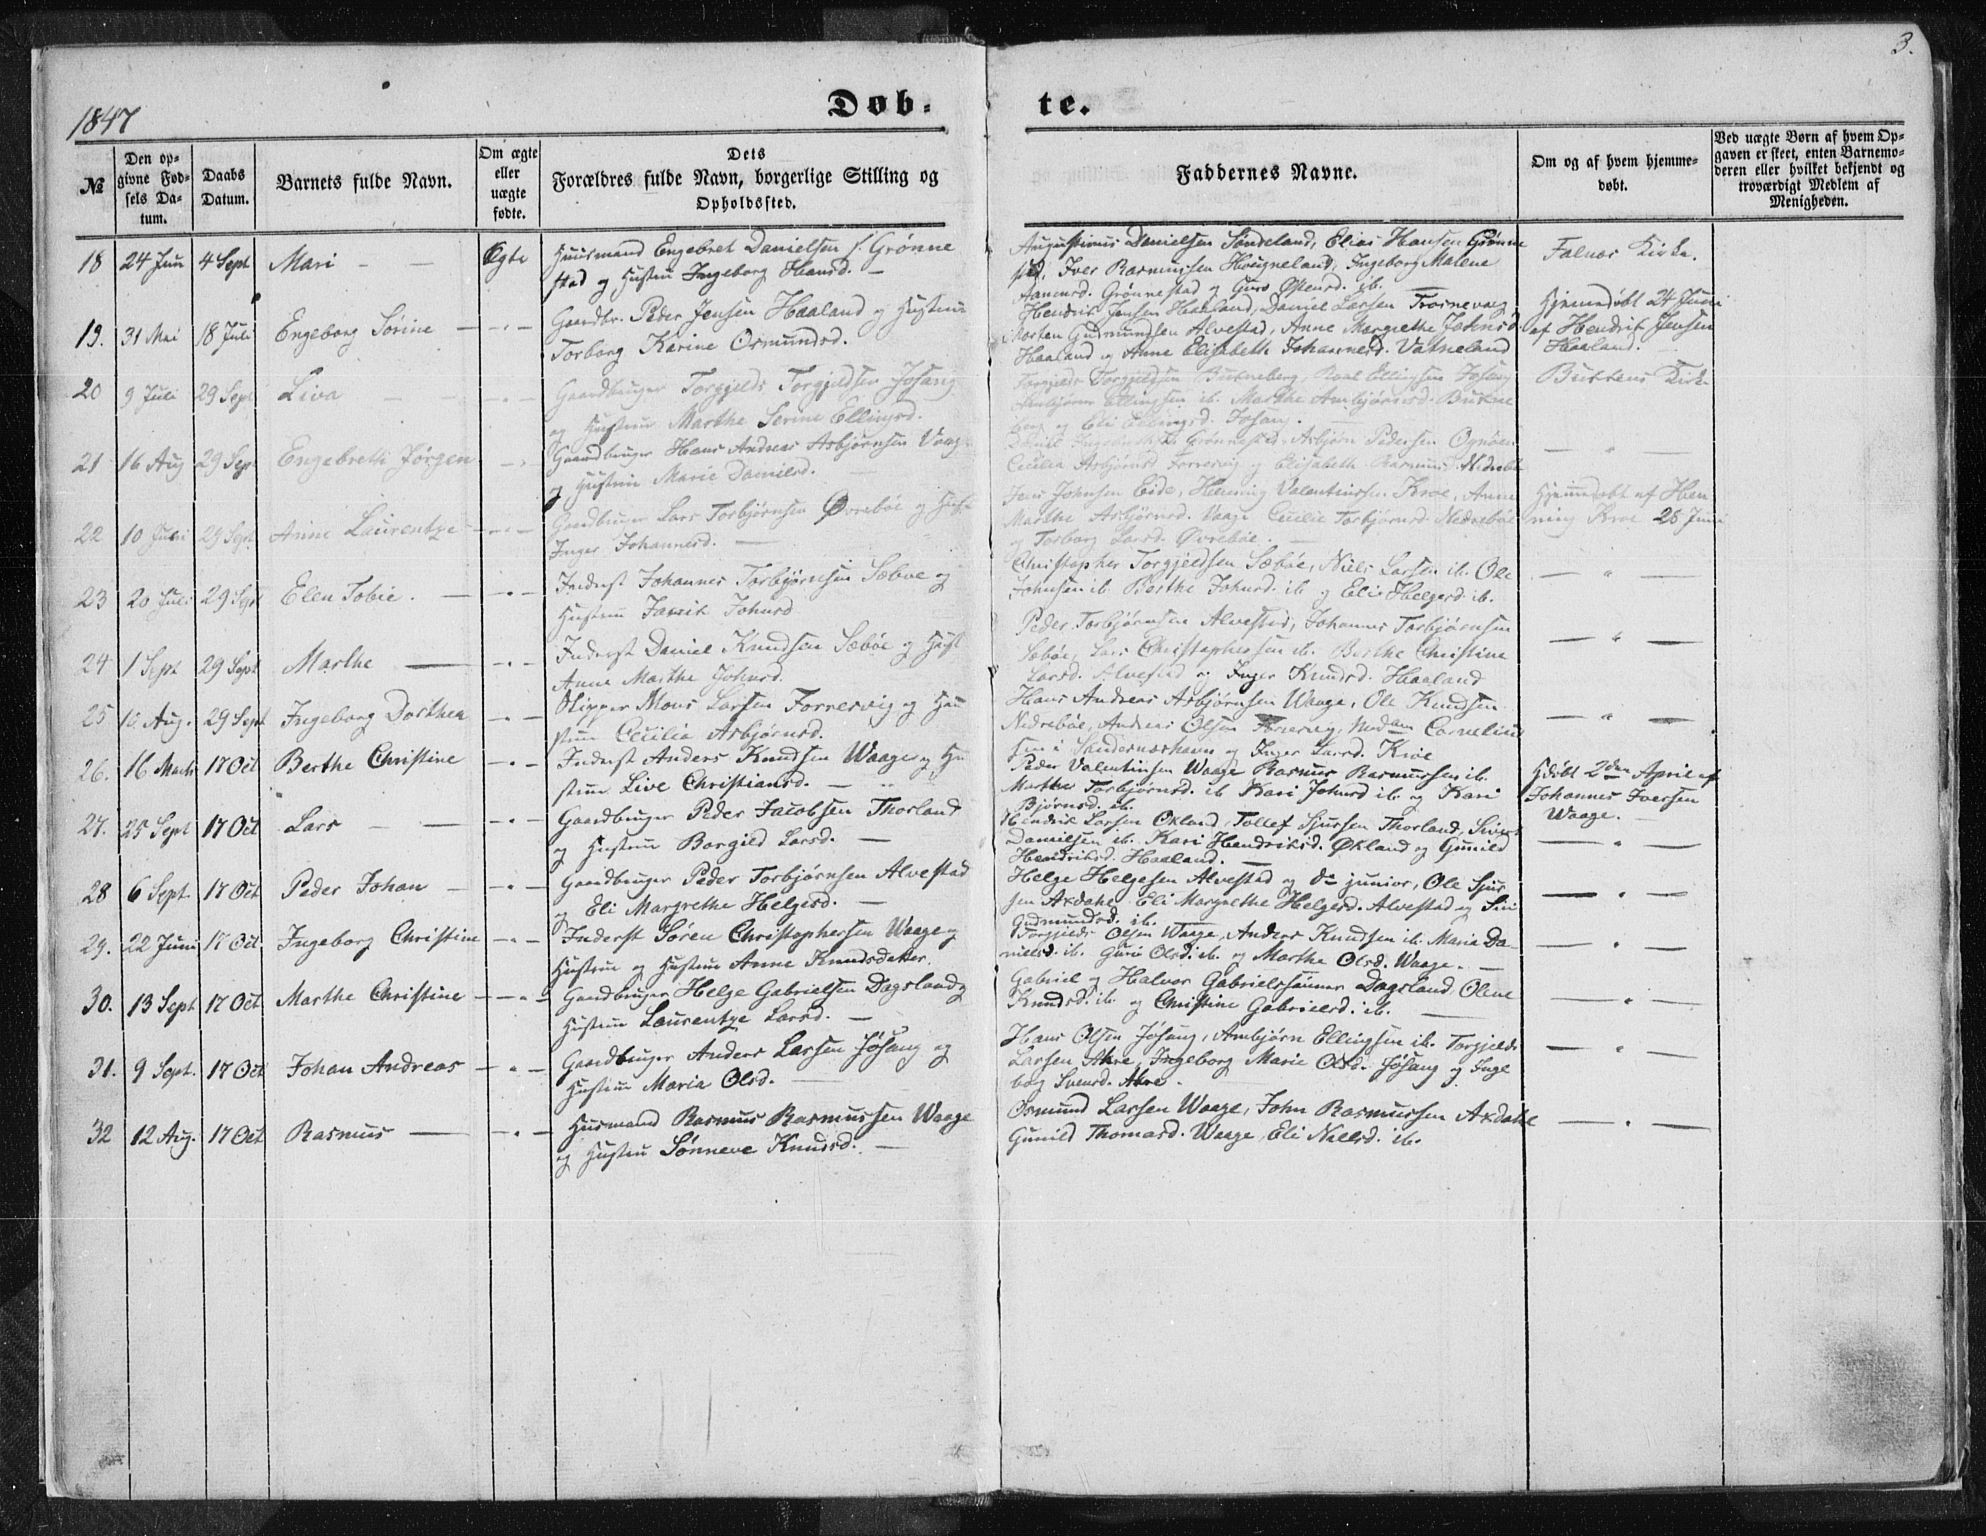 3.
1847
Døb- te.
№
Den opgivne Fødsels Datum.
Daabs Datum.
Barnets fulde Navn.
Om ægte eller uægte fødte.
Dets Forældres fulde Navn, borgerlige Stilling og Opholdssted.
Faddernes Navne.
Om og af hvem hjemmedøbt.
Ved uægte Børn af hvem Opgaven er skeet, enten Barnemoderen eller hvilket bekjendt og troværdigt Medlem af Menigheden.
18 24 Juni 4 Sept Mari — — Ægte
Huusmand Engebret Danielsen Grønne
stad og Hustru Ingeborg Hansd. —
Augustinus Danielsen Søndeland, Elias Hansen Grønne
sted, Iver Rasmussen Hougneland, Ingeborg Malene
Grønnestad og Guro Østensd. ib.
Falnes Kirke.
19. 31 Mai 18 Juli Engeborg Sørine — " —
Gaardbr. Peder Jensen Haaland og Hustrue
Torborg Karine Osmundsd.
Hendrik Jensen Haaland, Daniel Larsen
Morten Gudmundsen Alvestad, Anne Margrethe Johnsd.
Haaland og Anne Elisabeth Johannesd. Vatneland
Hjemmedøbt 24 Juni
af Hendrik Jensen
Haaland.
20 9 Juli 29 Sept Liva — — — " —
Gaardbruger Torgjelds Torgjeldsen Jøsang
og Hustrue Marthe Serine Ellingsd.
Torgjelds Torgjeldsen Butneberg, Roal Ellingsen Jøsang
Ambjørn Ellingsen ib. Marthe Ambjørnsd. Butne
berg og Eli Ellingsd. Jøsan. —
Kirke
21 16 Aug 29 Sept Engebreth Jørgen — " —
Gaardbruger Hans Andreas Asbjørnsen Vaag
og Hustrue Marie Danielsd. —
Daniel Grønnestad, Asbjørn Pedersen Ognøen
Cecilia Asbjørnsd Forrervig og Elisabeth Rasmusd. Nedrebø
— " —
22 10 Juli 29 Sept. Anne Laurentze — " —
Gaardbruger Lars Torbjørnsen Øvrebøe og Hust
Inger Johannesd. —
Jens Johnsen Eide, Henning Valentinsen Kroe, Anne
Marthe Asbjørnsd. Vaage Cecilie Torbjørnsd. Nedrebøe
og Torborg Larsd. Øvrebøe. —
Hjemmedøbt af Hen
ning Kroe 25 Juni
23 20 Juli 29 Sept Elen Tobie. — " —
Inderst Johannes Torbjørnsen Sæboe og
Hustrue Johnsd
Christopher Torgjeldsen Sæbøe, Niels Larsen ib. Ole
Johnsen ib. Berthe Johnsd. ib. og Elis Helgesd. ib.
— " —
24 1 Sept 29 Sept Marthe — — " —
Inderst Daniel Knudsen Sæbøe og Hust
Anne Marthe Johnsd.
Peder Torbjørnsen Alvestad, Johannes Torbjørnsen
Sæbøe, Lars Christophersen ib. Berthe Christine
Larsd. Alvestad og Inger Knudsd. Haaland
— " —
25 10 Aug. 29 Sept Ingeborg Dorthea — " —
Skipper Mons Larsen Forrervig og Hu
strue Cecilie Asbjørnsd.
Hans Andreas Asbjørnsen Waage, Ole Knudsen
Nedrebøe, Andreas Olsen Forrervig, Madam Cornelius
sen i og Inger Larsd. Kroe
— " —
26. 16 Marts 17 Oct Berthe Christine — " —
Inderst Anders Knudsen Waage og Hu
strue Live Christiansd. —
Peder Valentinsen Waage Rasmus Rasmussen ib.
Marthe Torbjørnsd. ib Kari Johnsd ib. og Kari
Bjørnsd. ib.
Hdøbt 2den April af
Johannes Iversen
Waage. —
27. 25 Sept 17 Oct Lars — — — " —
Gaardbruger Peder Jacobsen Thorland
og Hustrue Borgild Larsd. —
Hendrik Larsen Økland, Tollef Sjursen Thorland, Sivert
Danielsen ib. Kari Hendriksd. Økland og Gunild
Hendriksd. Haaland. —
— " —
28 6 Sept. 17 Oct Peder Johan — — " —
Gaardbruger Peder Torbjørnsen Alvestad
og Eli Margrethe Helgesd. —
Helge Helgesen Alvestad og do junior, Ole Sjur
sen Axdahl Eli Margrethe Helgesd. Alvestad og Siri
Gudmundsd. ib.
— " —
29. 22 Juni 17 Oct. Ingeborg Christine — " —
Inderst Søren Christophersen Waage og
Hustrue og Hustrue Anne Knudsdatter.
Torgjelds Olsen Waage, Anders Knudsen ib. Maria Da-
nielsd. ib. Guri Olsd. ib. og Marthe Olsd. Waage. —
— " —
30. 13 Sept 17 Oct Marthe Christine — " —
Gaardbruger Helge Gabrielsen Dagsland og
Hustrue Laurentze Larsd. —
Gabriel og Halvor Gabrielssønner Dagsland, Olene
Knudsd. ib. og Christine Gabrielsd. ib. —
— " —
31. 9 Sept. 17 Oct Johan Andreas — " —
Gaardbruger Anders Larsen Jøsang og
Hustrue Maria Olsd. —
Hans Olsen Jøsang, Ambjørn Ellingsen ib. Torgjelds
Larsen Ahre, Ingeborg Marie Olsd. Jøsang og Inge
borg Svensd. Ahre.
— " —
32 12 Aug. 17 Oct Rasmus — — " —
Husmand Rasmus Rasmussen Waage
og Hustru Sønneve Knudsd. —
Osmund Larsen Waage, John Rasmussen Axdahl
Gunild Thomasd. Waage, Eli Nielsd. ib.
— " —